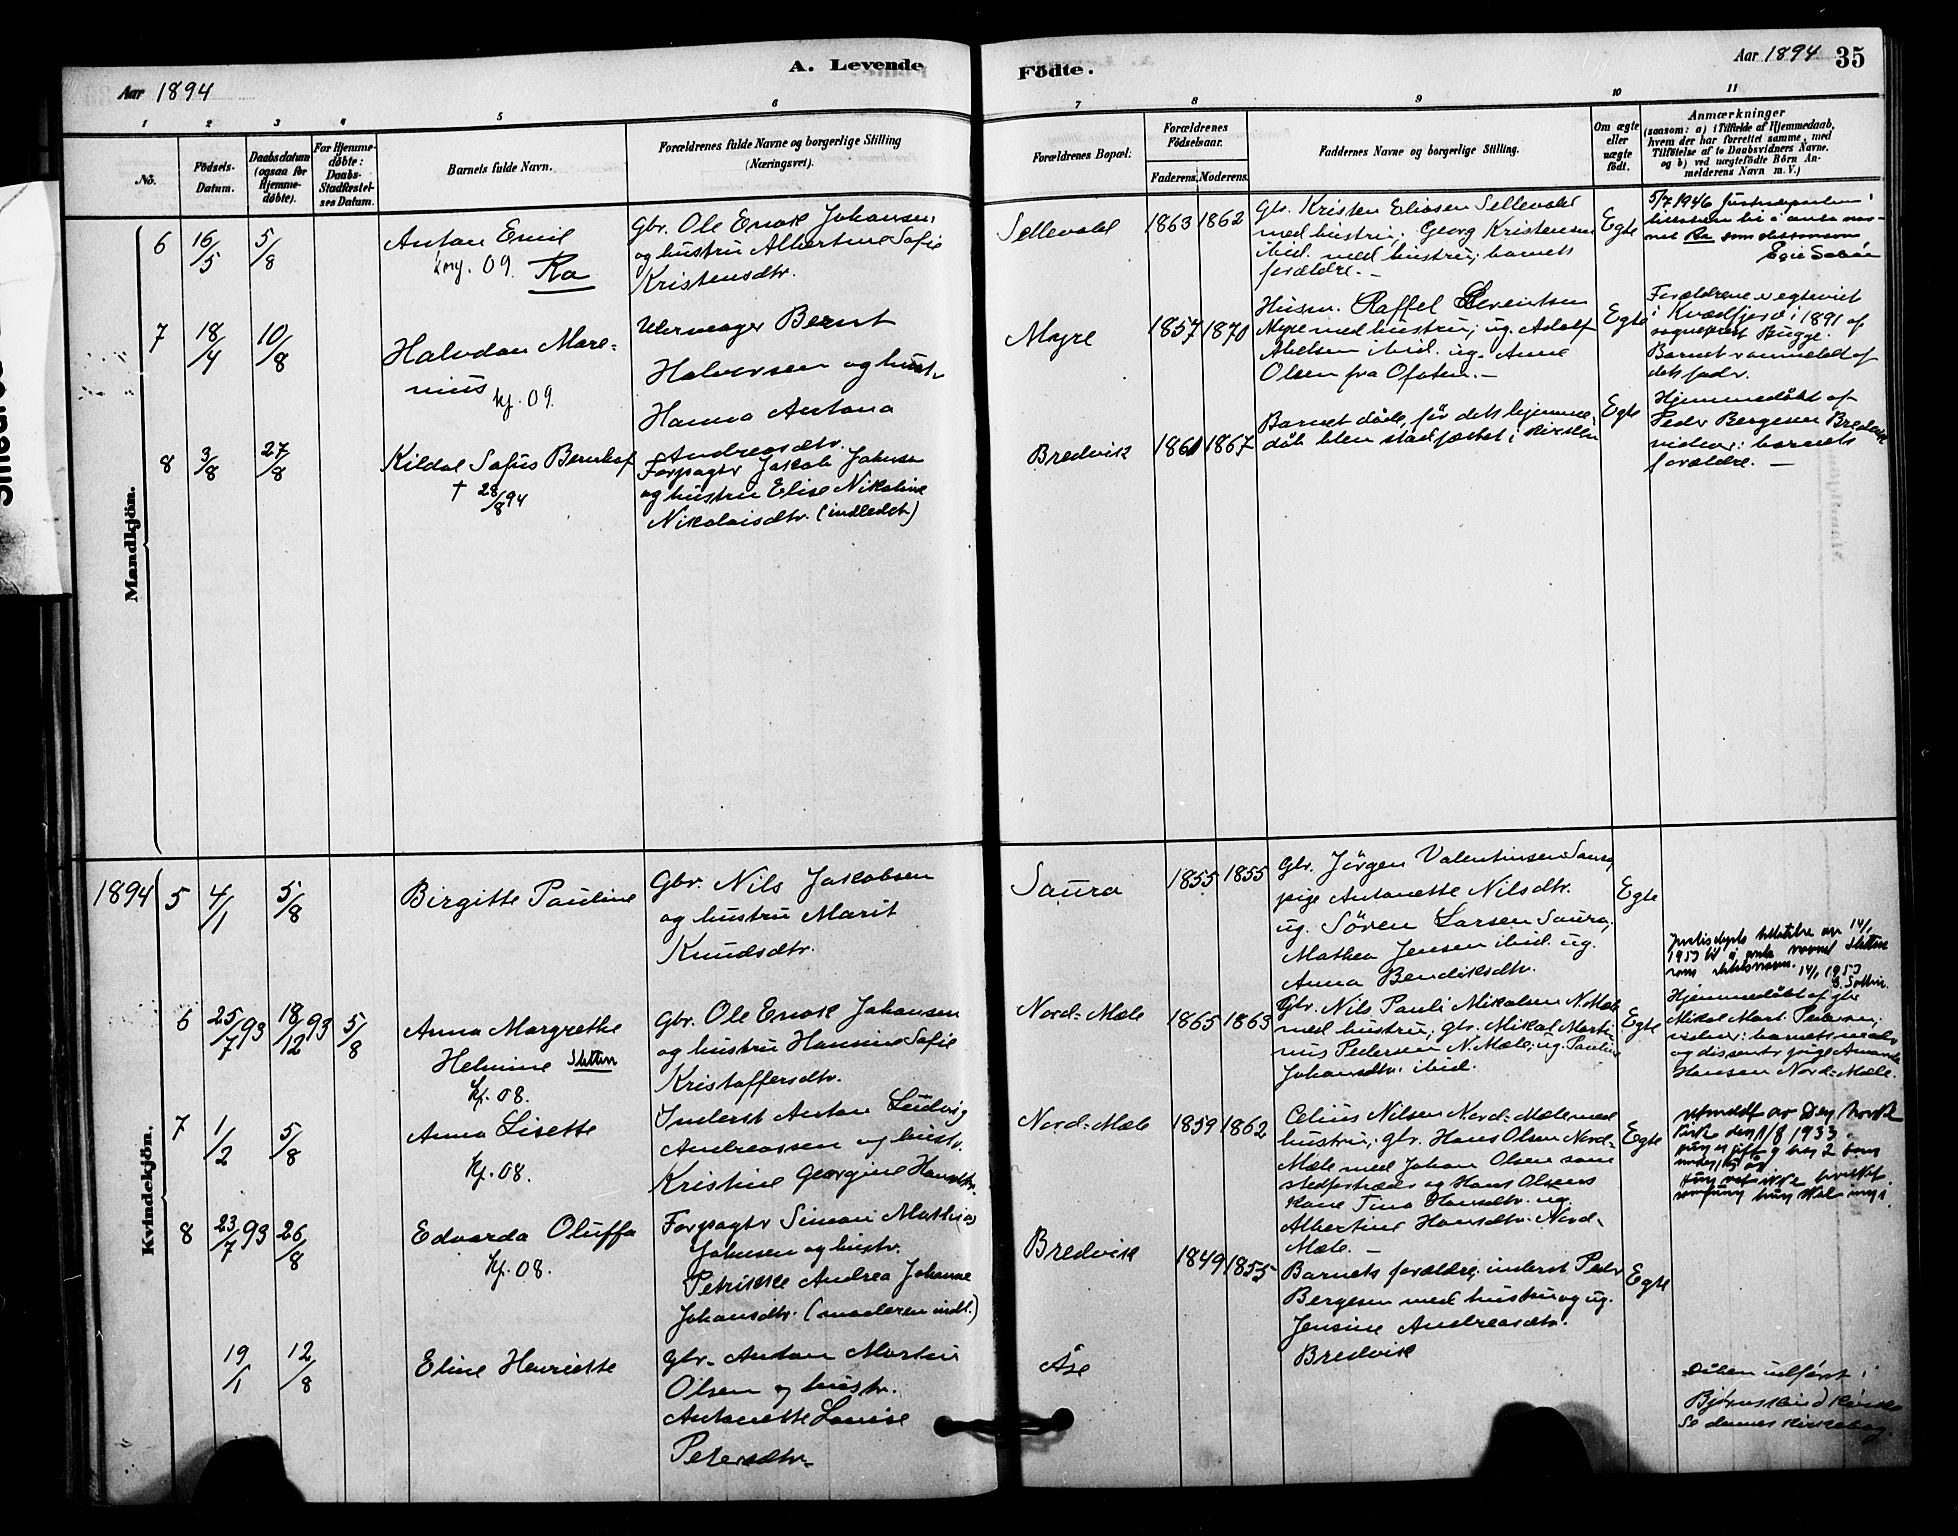 Aar 1894
A. Levende
Födte.
Aar 1894
35
1
2
3
4
5
6
7
8
9
10
11
No.
Födsels-
Datum.
Daabsdatum
(ogsaa for
Hjemme-
döbte).
For Hjemme-
döbte:
Daabs-
Stadfæstel-
ses Datum.
Barnets fulde Navn.
Forældrenes fulde Navne og borgerlige Stilling
(Næringsvei).
Forældrenes Bopæl:
Forældrenes
Födselsaar.
Faderens.
Moderens.
Faddernes Navne og borgerlige Stilling.
Om ægte
eller
uægte
födt.
Anmærkninger
(saasom: a) i Tilfælde af Hjemmedaab,
hvem der har forrettet samme, med
Tilföielse af to Daabsvidners Navne,
og b) ved uægtefödte Börn An-
melderens Navn m. V.)
Mandkjön.
6
16/5
5/8
Anton Emil
konf. 09. Ra
Gbr. Ole Enok Johansen
og hustru Albertine Sofie
Kristensdtr.
Sellevold
1863
1862
Gbr. Kristen Eliasen Sellevold
med hustru; Georg Kristensen
ibid. med hustru; barnets
forældre. —
Egte
5/7 1946
net Ra som slektsnavn
7
18/4
10/8
Halvdan Mare-
nius
kf. 09.
Bernt
Halvorsen og hustr.
Hanna Antona
Andreasdtr.
Myre
1857
1870
Husm. Raffel Sørentsen
Myre med hustru; ug. Adolf
Abelsen ibid. ug. Anne
Olsen fra Ofoten. —
Egte
Forældrene egteviet
i Kvædfjord i 1891 af
sogneprest Bugge.
Barnet anmeldt af
dets fader.
8
3/8
27/8
Kildal Sofus Bernhof
† 28/8 94
Forpagter Jakob Johnsen
og hustru Elise Nikoline
Nikolaisdtr. (indledet)
Bredvik
1861
1867
Barnet døde, før dets hjemme-
dåb blev stadfæstet i kirken
Egte
Hjemmedøbt af
Peder Bergesen Bredvik
vidner: barnets
forældre. —
Kvindekjön.
1894
5
4/1
5/8
Birgitte Pauline
Gbr. Nils Jakobsen
og hustru Marit
Knudsdtr.
Saura
1855
1855
Gbr. Jörgen Valentinsen Saura,
pige Antonette Nilsdtr.
ug. Sören Larsen Saura,
Mathea Jensen ibid. ug.
Anna Bendiksdtr.
Egte
6
25/7 93
18/12 93
5/8
Anna Margrethe
Helmine Sletten
kf. 08.
Gbr. Ole Enok Johansen
og hustru Hansine Sofie
Kristoffersdtr.
Nord-Mæle
1865
1863
Gbr. Nils Pauli Mikalsen N. Mæle
med hustru; gbr. Mikal Marti-
nus Pedersen N. Mæle; ug. Pauline
Johansdtr. ibid.
Egte
14/1
1953 til å anta navnet Sletten
som slektsnavn. 14/1 1953
Hjemmedøbt af gbr.
Mikal Mart. Pedersen;
vidner: barnets moder
og dissenter pige Amanda
Hansen Nord-Mæle.
7
1/2
5/8
Anna Lisette
kf. 08.
Inderst Anton Ludvig
Andreassen og hustr.
Kristine Georgine Hansdtr.
Nord-Mæle
1859
1862
Celius Nilsen Nord-Mæle med
hustru; gbr. Hans Olsen Nord-
Mæle med Johan Olsen som
stedfortræder og Hans Olsens
kone Tina Hansdtr. ug.
Albertine Hansdtr. Nord-
Mæle. —
Egte
Utmeldt av Den norske
Kirke den 1/8 1933
8
23/7 93
26/8
Edvarda Oluffa
kf. 08.
Forpagter Simon Mathias
Johnsen og hustr.
Petrikke Andrea Johanne
Johansdtr. (moderen indl.)
Bredvik
1849
1855
Barnets forældre, inderst Peder
Bergesen med hustru og ug.
Jensine Andreasdtr.
Bredvik
Egte
19/1
12/8
Eline Henriette
Gbr. Anton Martin
Olsen og hustr.
Antonette Lovise
Petersdtr.
Åse
Dåben udført i
Bjørnskind kirke
Se dennes kirkebog.